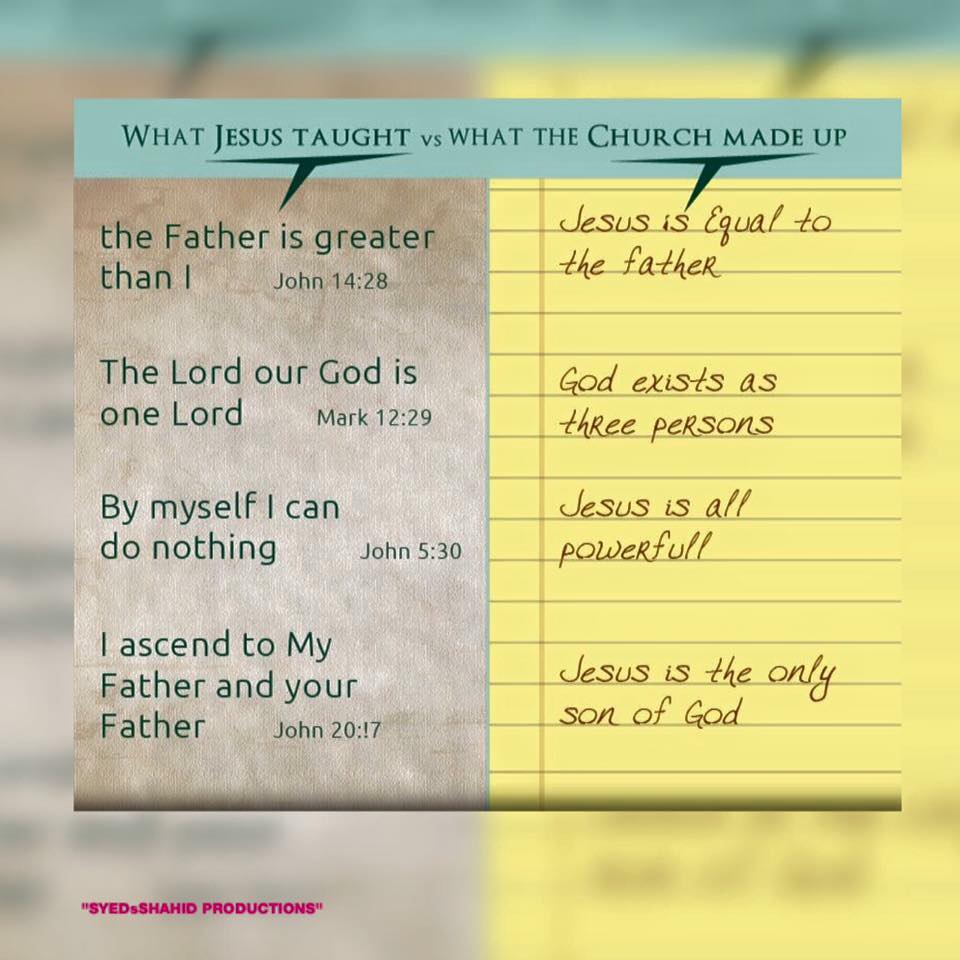 What Jesus taught vs what the Church made up
the Father is greater
than I John 14:28
Jesus is Equal to
the father
The Lord our God is
one Lord Mark 12:29
God exists as
three persons
By myself I can
do nothing John 5:30
Jesus is all
powerfull
I ascend to My
Father and your
Father John 20:!7
Jesus is the only
son of God
"SYEDsSHAHID PRODUCTIONS"